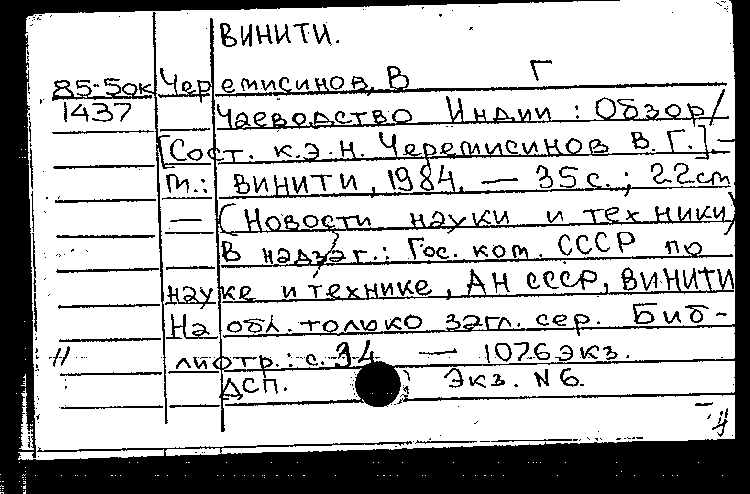 ВИНИТИ.
85-5ок Черемисинов, В Г
1437 Чаеводство Индии : Обзор /
[Сост. к.э.н. Черемисинов В. Г.]. –
М.: ВИНИТИ, 1984. — 35 с. ; 22 см
— (Новости науки и техники)
В надзаг.: Гос. ком. СССР по
науке и технике, АН СССР, ВИНИТИ
На обл. только загл. сер. Биб-
// лиогр.: с. 34 — 1076 экз.
ДСП. Экз. N 6.